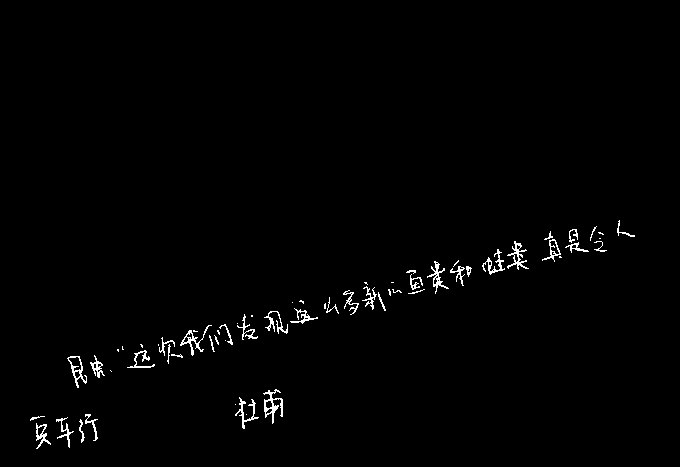 昆虫."这次我们发现这么多新的鱼类和蛙类真是令人
兵车行 杜甫